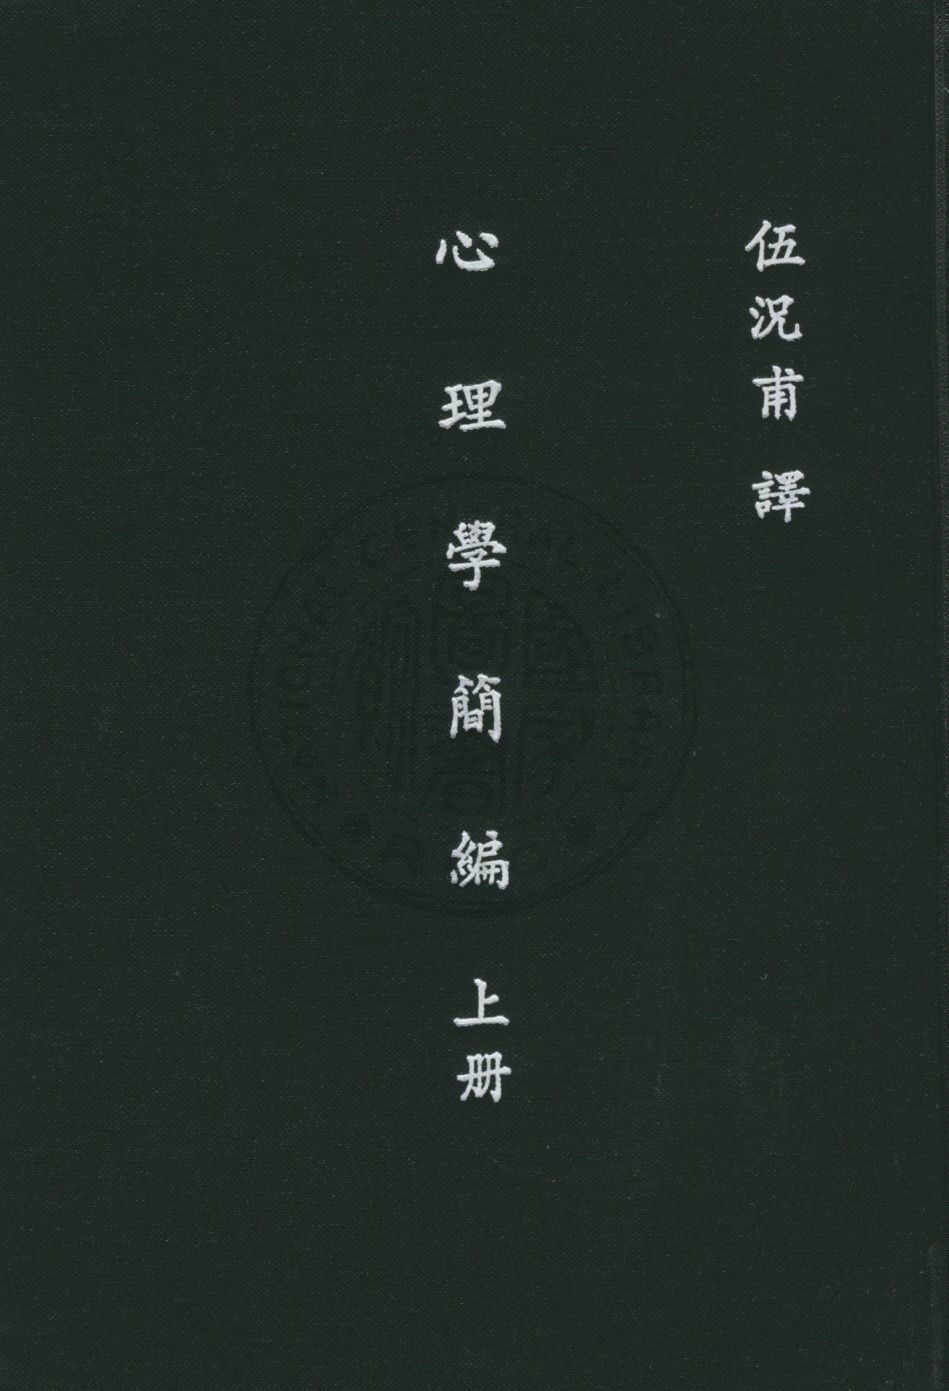 伍況甫 譯
心理學簡編 上册